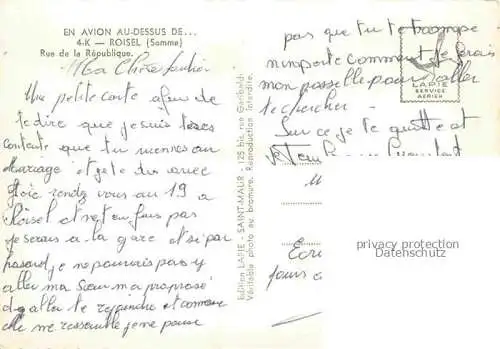 EN AVION AU-DESSUS DE...
4-K — ROISEL (Somme)
Rue de la République.
Ma Chère
Une petite carte afin de
te dire que je suis très
contente que tu viennes au
Mariage et je te dis avec
joie rendez vous au 19 a
Roisel et n'en fais pas
je serais a la gare et si par
hasard je ne pouvais pas y
aller ma Sœur m'a proposé
d'aller te rejoindre et comme
elle me ressemble je ne pense
Edition LAPIE - SAINT-MAUR - 125 bis, rue Garibaldi
Véritable photo au bromure. Reproduction interdite.
pas que tu te trompe
n'importe comment je ferais
mon possible pour aller
te chercher
Sur ce je te quitte et
LAPIE
SERVICE
AÉRIEN
privacy protection
Datenschutz